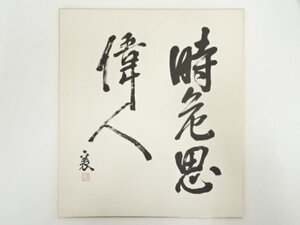 時危思
偉人